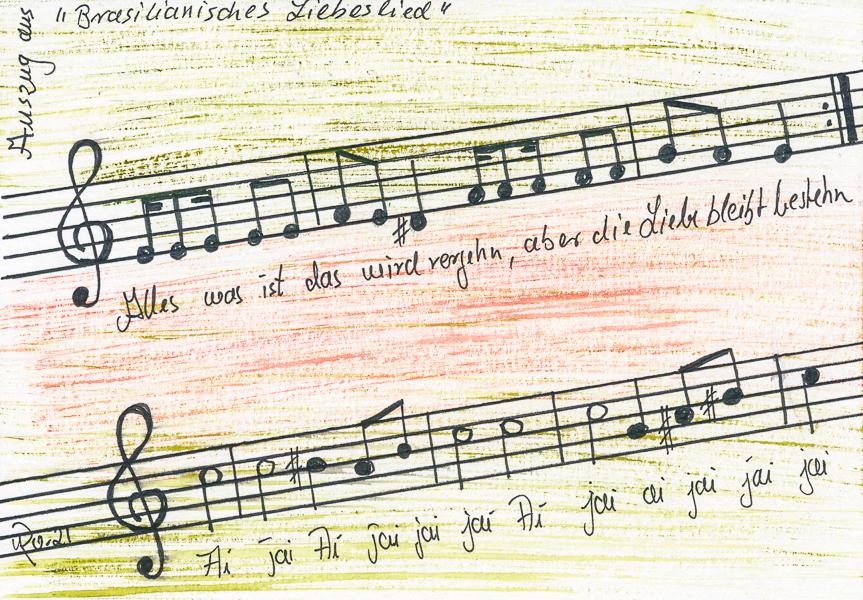 Auszug aus
"Brasilianisches Liebeslied"
Alles was ist das wird vergehn, aber die Liebe bleibt bestehn
Ai jai Ai jai jai jai Ai jai ai jai jai jai